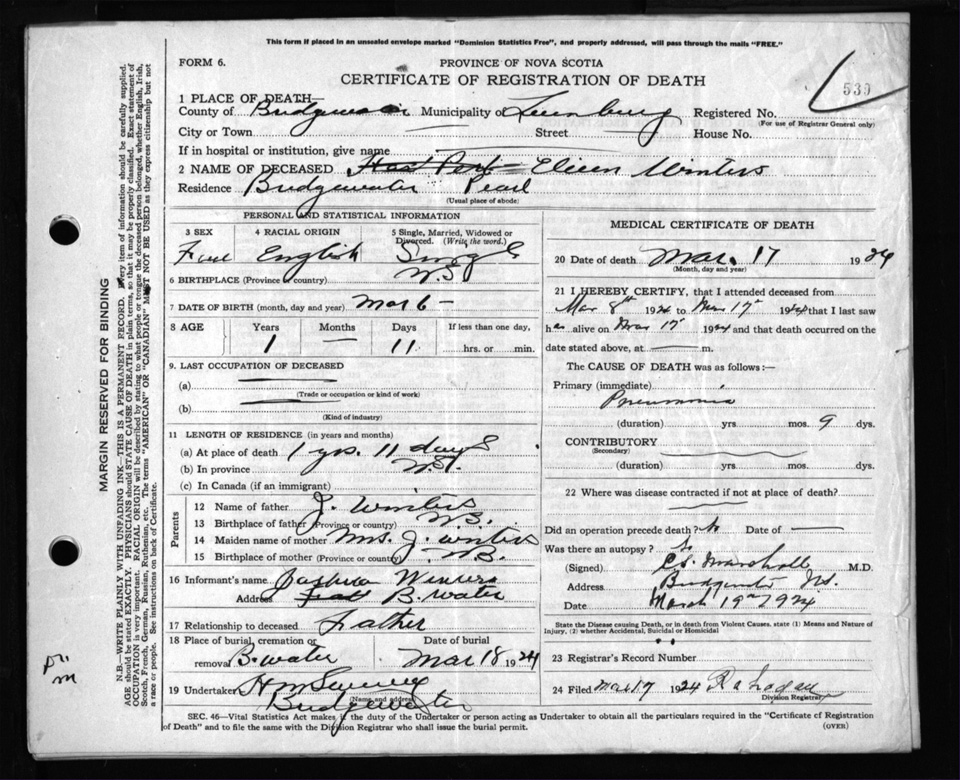 This form if placed in an unsealed envelope marked "Dominion Statistics Free", and properly addressed, will pass through the mails "FREE."
FORM 6.
PROVINCE OF NOVA SCOTIA
CERTIFICATE OF REGISTRATION OF DEATH
530
1 PLACE OF DEATH—
County of Bridgewater Municipality of Lunenburg Registered No.
(For use of Registrar General only)
City or Town — Street — House No.
If in hospital or institution, give name
2 NAME OF DECEASED Eileen Winters
Residence Bridgewater Pearl
(Usual place of abode)
PERSONAL AND STATISTICAL INFORMATION
3 SEX 4 RACIAL ORIGIN 5 Single, Married, Widowed or Divorced. (Write the word.)
English Single
6 BIRTHPLACE (Province or country) N.S
7 DATE OF BIRTH (month, day and year) Mar 6 —
8 AGE Years Months Days If less than one day,
1 — 11 hrs. or min.
9. LAST OCCUPATION OF DECEASED
(a)
(Trade or occupation or kind of work)
(b)
(Kind of industry)
11 LENGTH OF RESIDENCE (in years and months)
(a) At place of death 1 yrs. 11 days
(b) In province
(c) In Canada (if an immigrant)
Parents
12 Name of father J. Winters
13 Birthplace of father (Province or country) N.S.
14 Maiden name of mother Mrs. J. Winters
15 Birthplace of mother (Province or country) N.S.
16 Informant's name Winters
Address B. water
17 Relationship to deceased Father
18 Place of burial, cremation or removal B. water Date of burial Mar 18 1924
19 Undertaker
(Name and address)
Bridgewater
MEDICAL CERTIFICATE OF DEATH
20 Date of death Mar. 17 1924
(Month, day and year)
21 I HEREBY CERTIFY, that I attended deceased from
Mar 8th 1924 to Mar 17th 1924 that I last saw
h alive on Mar 17 1924 and that death occurred on
date stated above, at — m.
The CAUSE OF DEATH was as follows:—
Primary (immediate)
Pneumonia
(duration) yrs. mos. 9 dys.
CONTRIBUTORY
(Secondary)
(duration) yrs. mos. dys.
22 Where was disease contracted if not at place of death?
Did an operation precede death? No Date of —
Was there an autopsy?
(Signed) Marshall M.D.
Address Bridgewater N.S.
Date March 19th 1924
State the Disease causing Death, or in death from Violent Causes, state (1) Means and Nature of
Injury, (2) whether Accidental, Suicidal or Homicidal
23 Registrar's Record Number
24 Filed Mar 17 1924
Division Registrar
SEC. 46—Vital Statistics Act makes it the duty of the Undertaker or person acting as Undertaker to obtain all the particulars required in the "Certificate of Registration
of Death" and to file the same with the Division Registrar who shall issue the burial permit.
(OVER)
MARGIN RESERVED FOR BINDING
N.B.—WRITE PLAINLY WITH UNFADING INK—THIS IS A PERMANENT RECORD. Every item of information should be carefully supplied.
AGE should be stated EXACTLY. PHYSICIANS should STATE CAUSE OF DEATH in plain terms, so that it may be properly classified. Exact statement of
OCCUPATION is very important. RACIAL ORIGIN will be described by stating to what people or tongue the deceased person belonged, whether English, Irish,
Scotch, French, German, Russian, Ruthenian, etc. The terms "AMERICAN" OR "CANADIAN" MUST NOT BE USED as they express citizenship but not
a race or people. See instructions on back of Certificate.